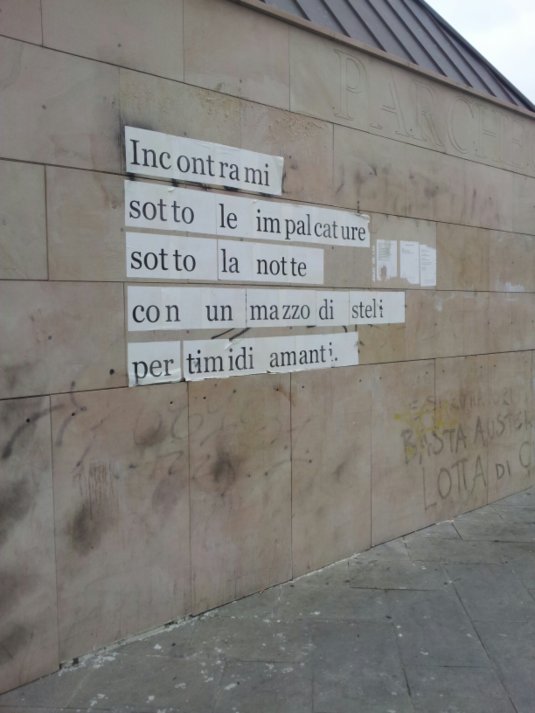 PARCHE
Incontrami
sotto le impalcature
sotto la notte
con un mazzo di steli
per timidi amanti.
BASTA AUSTER
LOTTA DI C